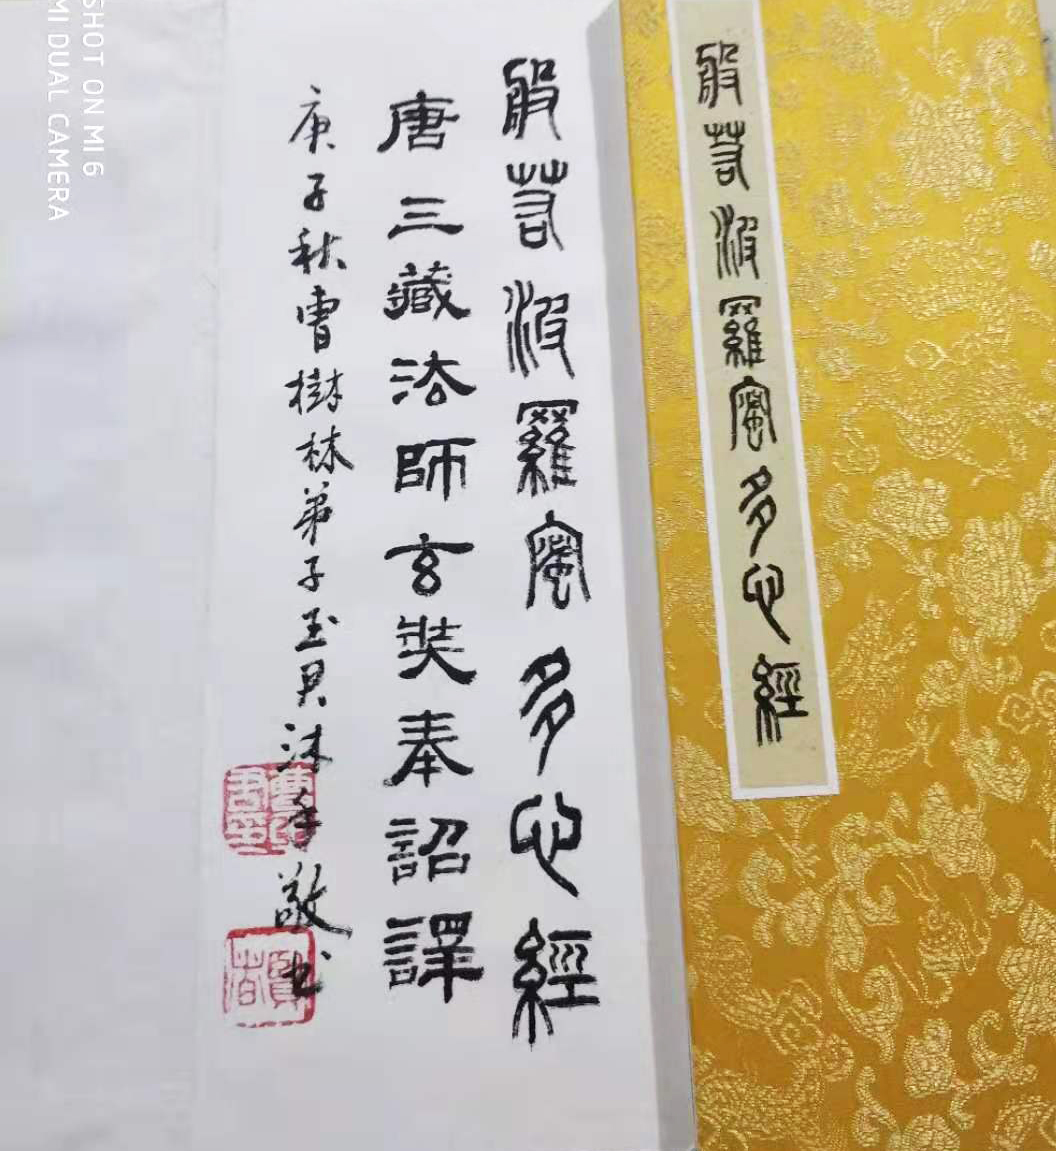 般若波羅蜜多心經
般若波羅蜜多心經
唐三藏法師玄奘奉詔譯
庚子秋曹樹林弟子玉君沐手敬书
SHOT ON MI 6
MI DUAL CAMERA